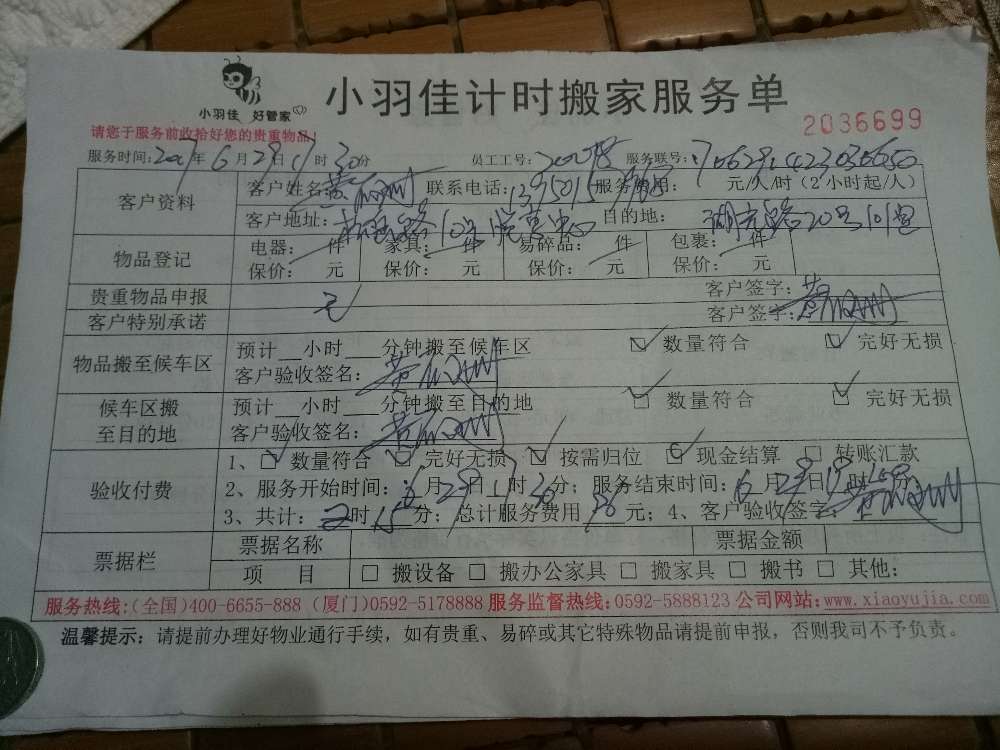 小羽佳 好管家
小羽佳计时搬家服务单
2036699
请您于服务前收拾好您的贵重物品!
服务时间:2017年6月29日17时30分 员工工号: 服务联号:
客户资料 客户姓名: 联系电话: 服务费用: 元/人/时(2小时起/人)
客户地址: 目的地: 20号101
物品登记 电器: 件 家具: 件 易碎品: 件 包裹: 件
保价: 元 保价: 元 保价: 元 保价: 元
贵重物品申报 无 客户签字:
客户特别承诺 客户签字:
物品搬至候车区 预计__小时___分钟搬至候车区 ☑ 数量符合 ☑ 完好无损
客户验收签名:
候车区搬至目的地 预计__小时___分钟搬至目的地 ☑ 数量符合 ☑ 完好无损
客户验收签名:
验收付费 1、☑ 数量符合 ☑ 完好无损 ☑ 按需归位 ☑ 现金结算 □ 转账汇款
2、服务开始时间:6月29日 时30分; 服务结束时间:6月29日19时 分
3、共计:2时15分; 总计服务费用 元; 4、客户验收签字:
票据栏 票据名称 票据金额
项 目 □ 搬设备 □ 搬办公家具 □ 搬家具 □ 搬书 □ 其他:
服务热线:(全国)400-6655-888 (厦门)0592-5178888 服务监督热线:0592-5888123 公司网站:www.xiaoyujia.com
温馨提示:请提前办理好物业通行手续,如有贵重、易碎或其它特殊物品请提前申报,否则我司不予负责。